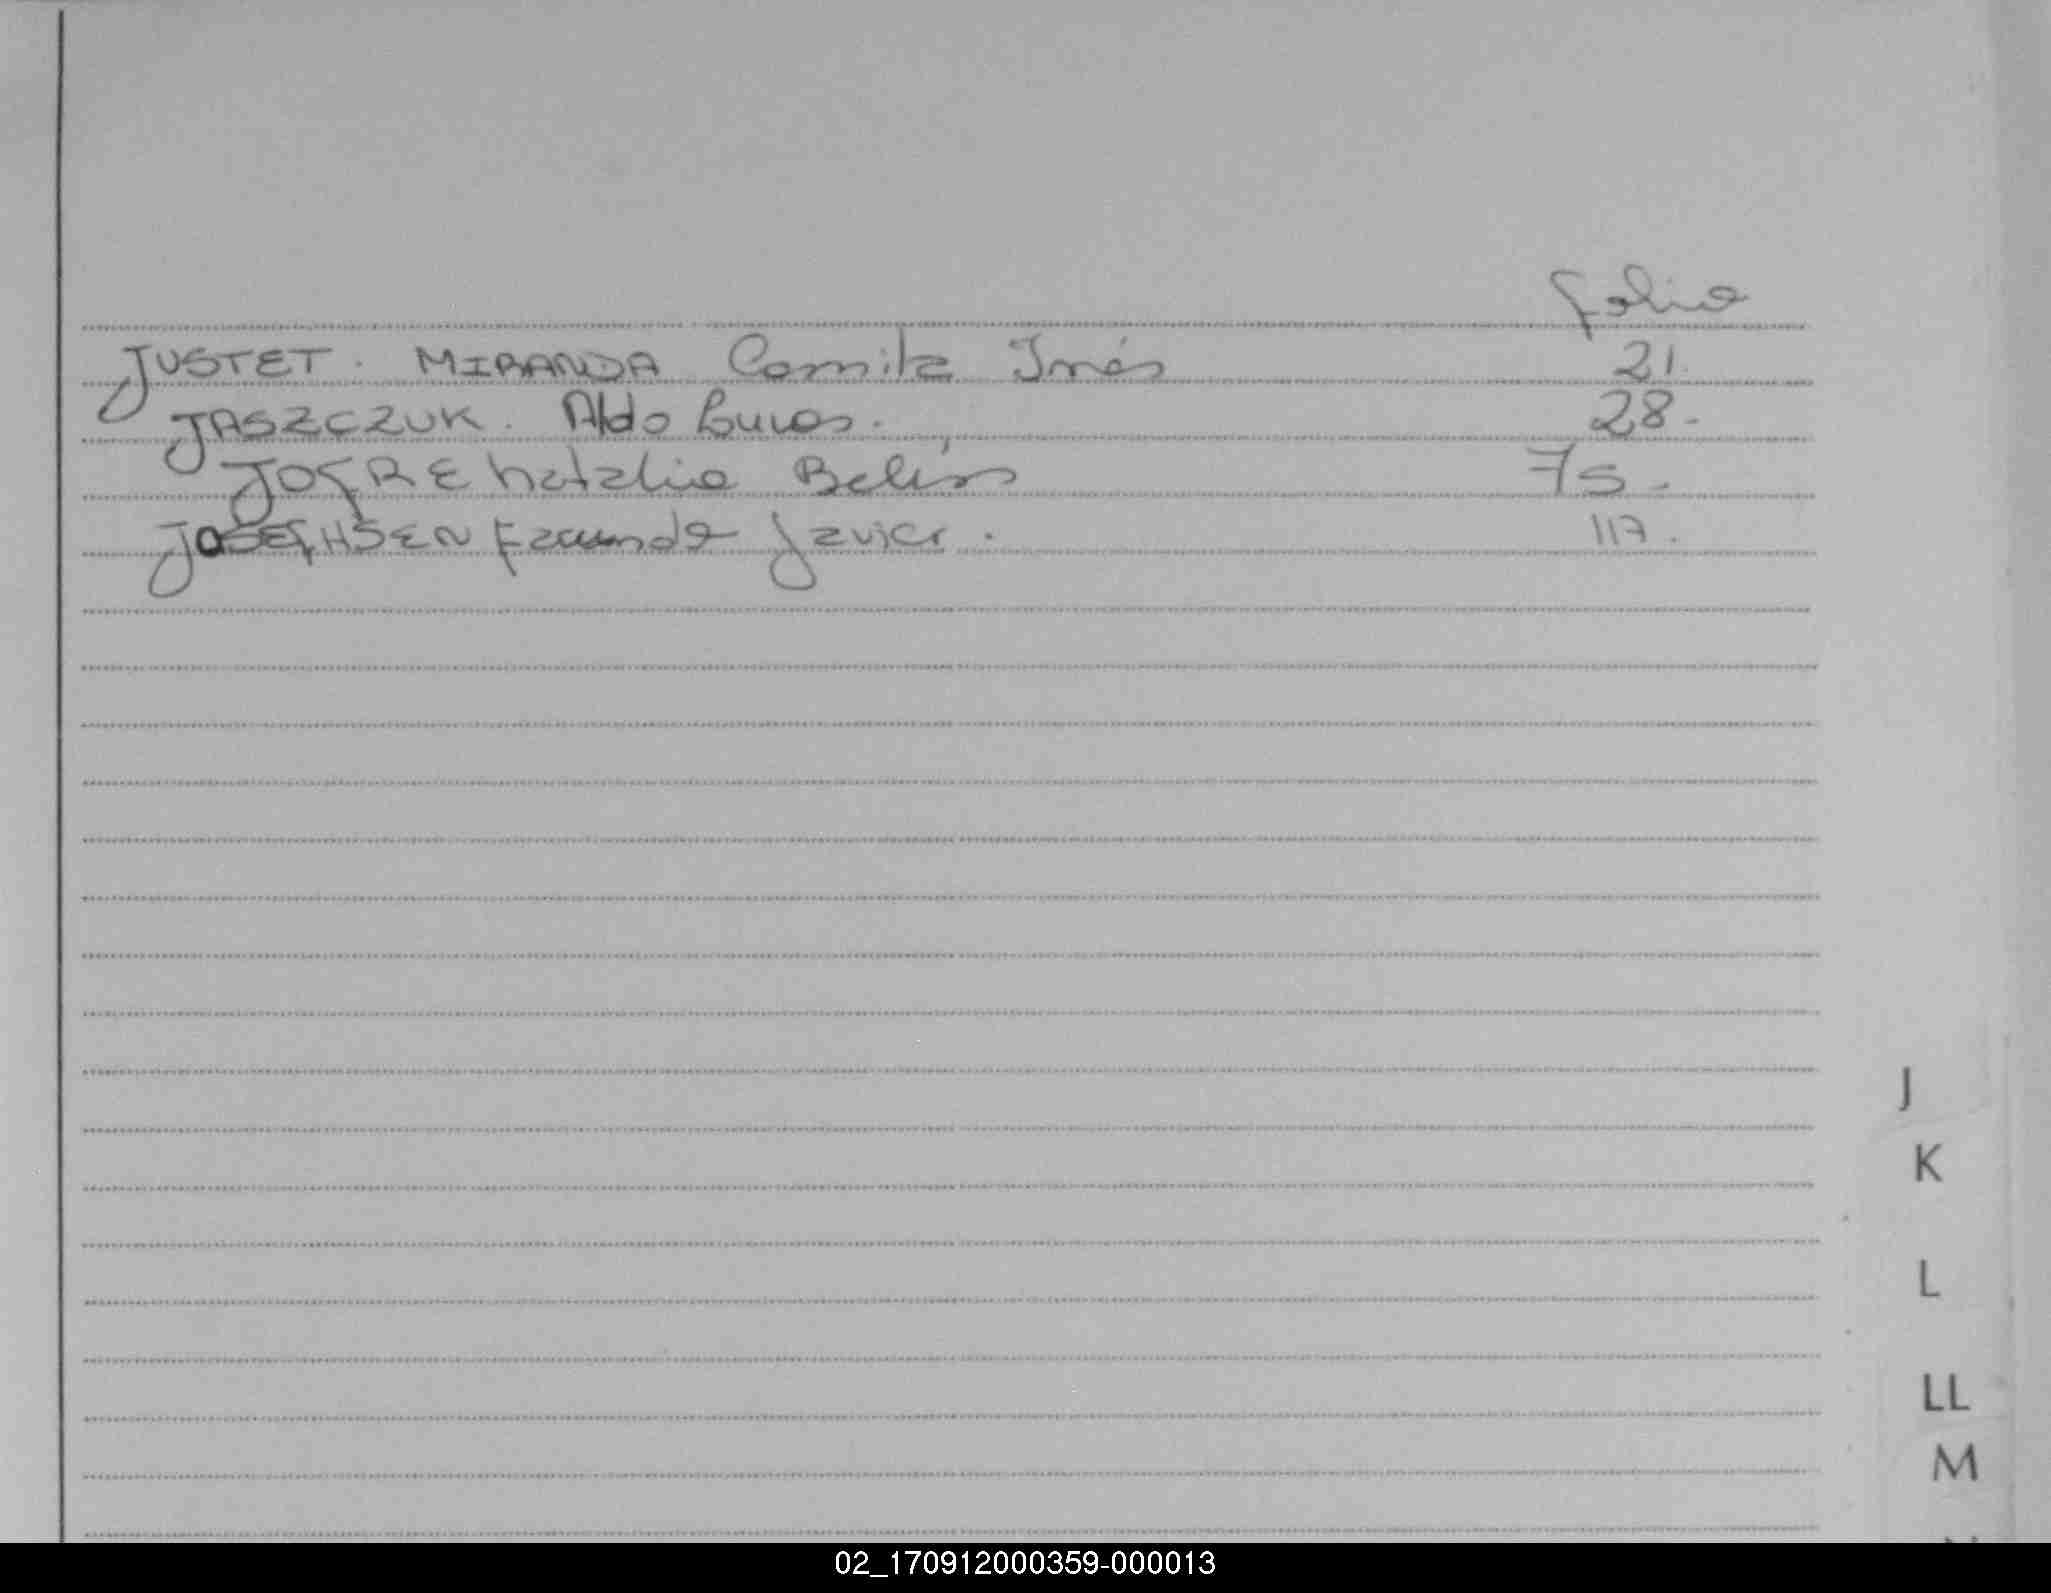 folio
JUSTET. MIRANDA Camila Inés 21.
JASZCZUK. Aldo Lucas. 28.
JOFRE Natalia Belén 75.
JOSEPHSEN Facundo Javier. 117.
J
K
L
LL
M
02_170912000359-000013